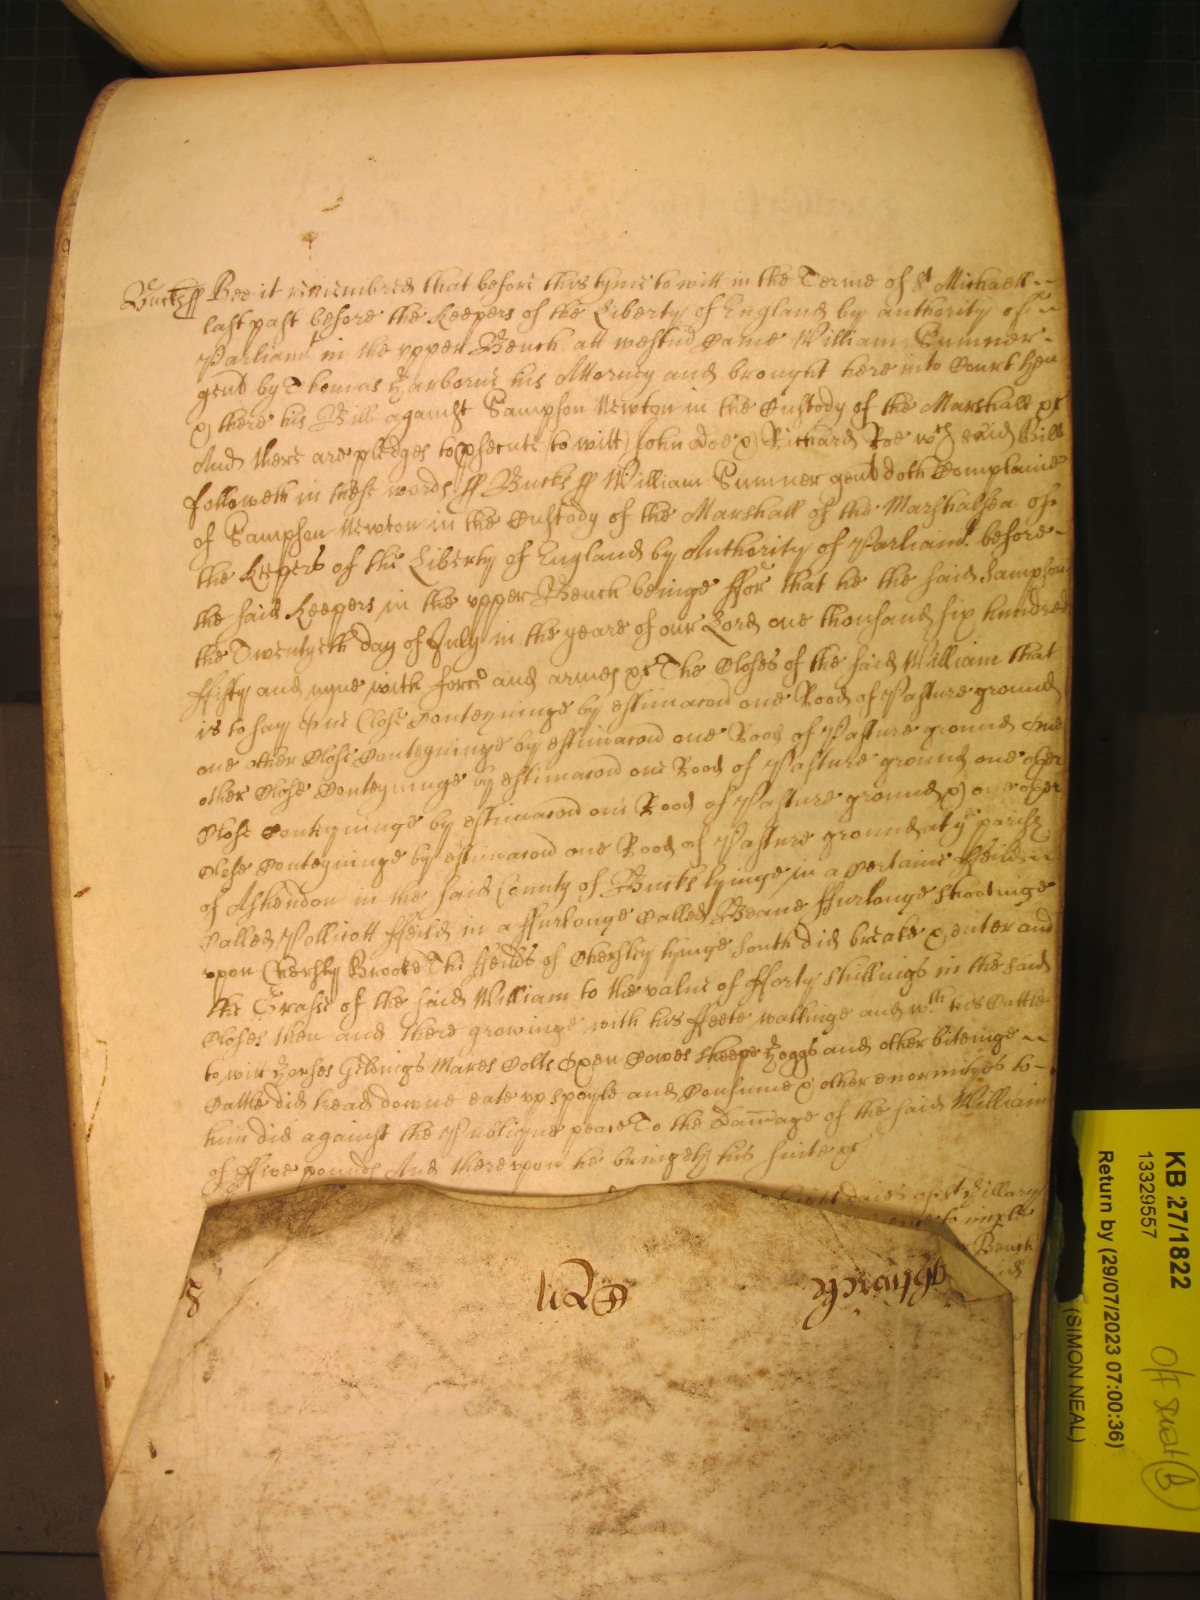 Bucks ss Bee it remembred that before this tyme to witt in the Terme of St Michaell
last past before the Keepers of the Liberty of England by authority of
Parliamt in the vpper Bench att Westmr Came William Sumner
gent by Thomas Harborne his Attorney and brought here into Court then
& there his Bill against Sampson Newton in the Custody of the Marshall &c
And there are pledges to psecute to witt John Doe & Richard Roe wch said Bill
followeth in these words ss Bucks ss William Sumner gent doth Complaine
of Sampson Newton in the Custody of the Marshall of the Marshalsea of
the Keepers of the Liberty of England by Authority of Parliamt before
the said Keepers in the vpper Bench beinge ffor that he the said Sampson
the Twentyeth day of July in the yeare of our Lord one thousand six hundred
ffifty and nyne with force and armes &c The Closes of the said William that
is to say One Close Conteyninge by estimacon one Rood of Pasture ground
one other Close Conteyninge by estimacon one Rood of Pasture ground One
other Close Conteyninge by estimacon one Rood of Pasture ground one other
Close Conteyninge by estimacon one Rood of Pasture ground & one other
Close Conteyninge by estimacon one Rood of Pasture ground at ye parish
of Ashendon in the said County of Bucks lyinge in a Certaine ffeild
Called Pollicott ffeild in a ffurlonge Called Beane ffurlonge shootinge
vpon Brooke The ffeilds of Chersley lyinge South did breake & enter and
the Grasse of the said William to the value of fforty shillings in the said
Closes then and there growinge with his ffeete walkinge and wth his Cattle
to witt Horses Geldings Mares Colts Oxen Cowes Sheepe Hoggs and other biteinge
Cattle did tread downe eate vp spoyle and Consume & other enormityes to
him did against the Publique peace To the Damage of the said William
of ffive pounds And therevpon he bringeth his suite &c
daies of St Hillary
Bench
KB 27/1822
13329557
Return by (29/07/2023 07:00:36)
(SIMON NEAL)